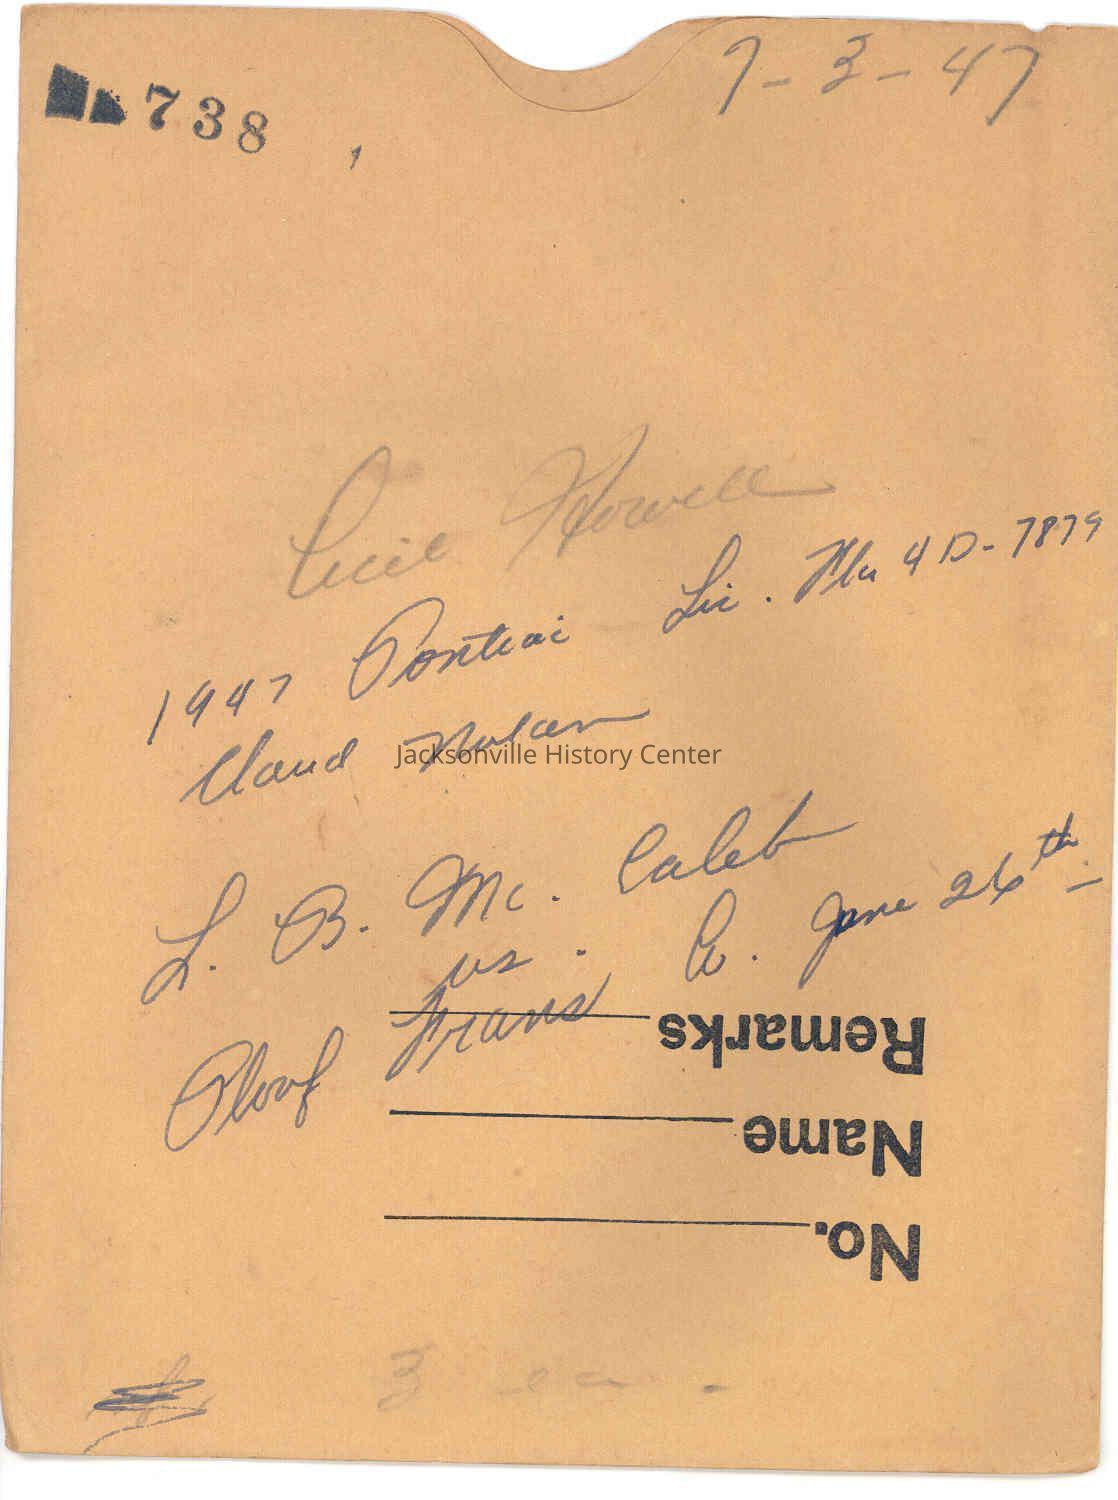 738
7-3-47
Cecil Howell
1947 Pontiac Lic. Fla 4D-7879
Claud Nolan
Jacksonville History Center
L. B. Mc. Caleb
vs.
Ploof Trans Co. June 26th
Remarks
Name
No.
3 ea.